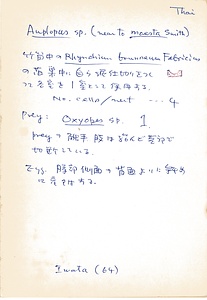 Thai
Auplopus sp. (near to maesta Smith)
竹筒中の Rhynchium brunneum Fabricius
の古巣中に自ら泥仕切をつく
って各室を1室として使用する。
No. cells/nest ... 4
Prey: Oxyopes sp. 1
preyの脚は
切断している。
Egg. 腹部側面の背面よりに
に産付する。
Iwata (64)